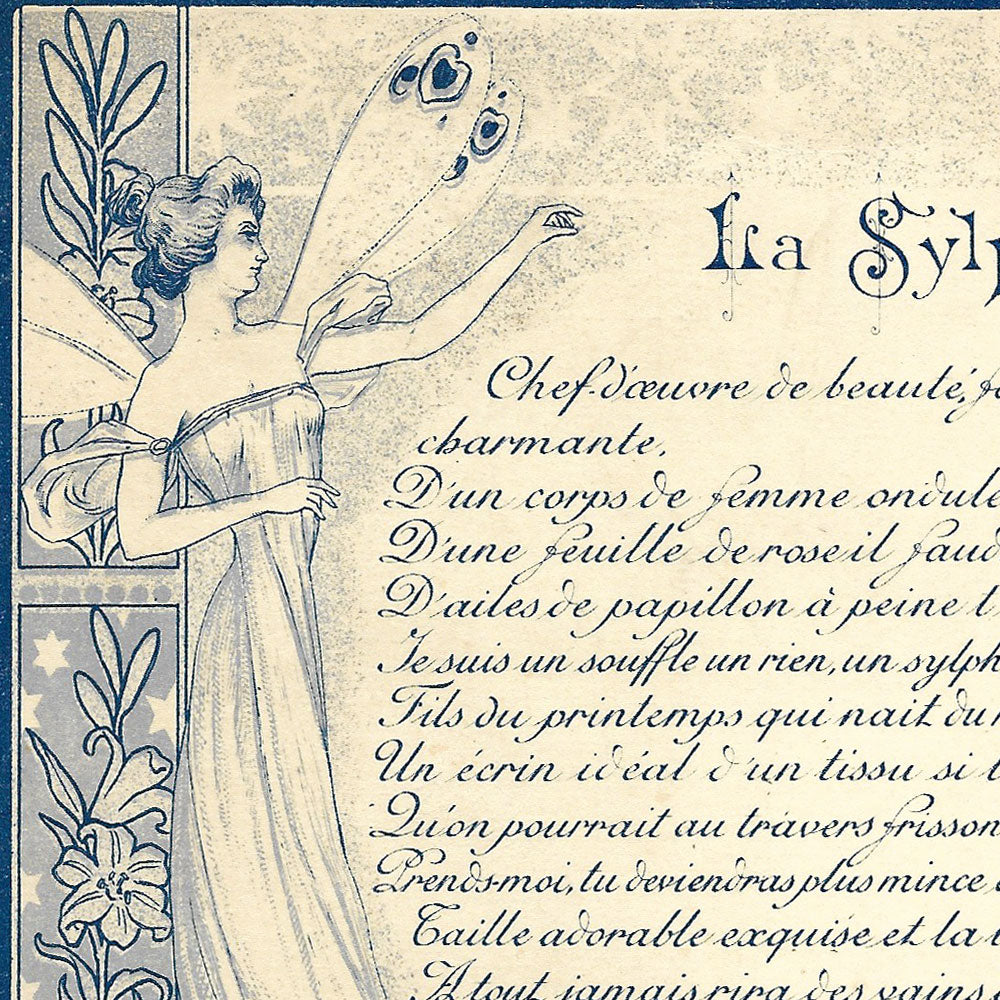 La Sylp
Chef-d'œuvre de beauté, fo
charmante.
D'un corps de femme ondule
D'une feuille de rose il faud
D'ailes de papillon à peine l
Je suis un souffle un rien, un sylph
Fils du printemps qui nait du
Un écrin idéal d'un tissu si l
Qu'on pourrait au travers frisson
Prends-moi, tu deviendras plus mince
Taille adorable exquise et la
A tout jamais rira des vains